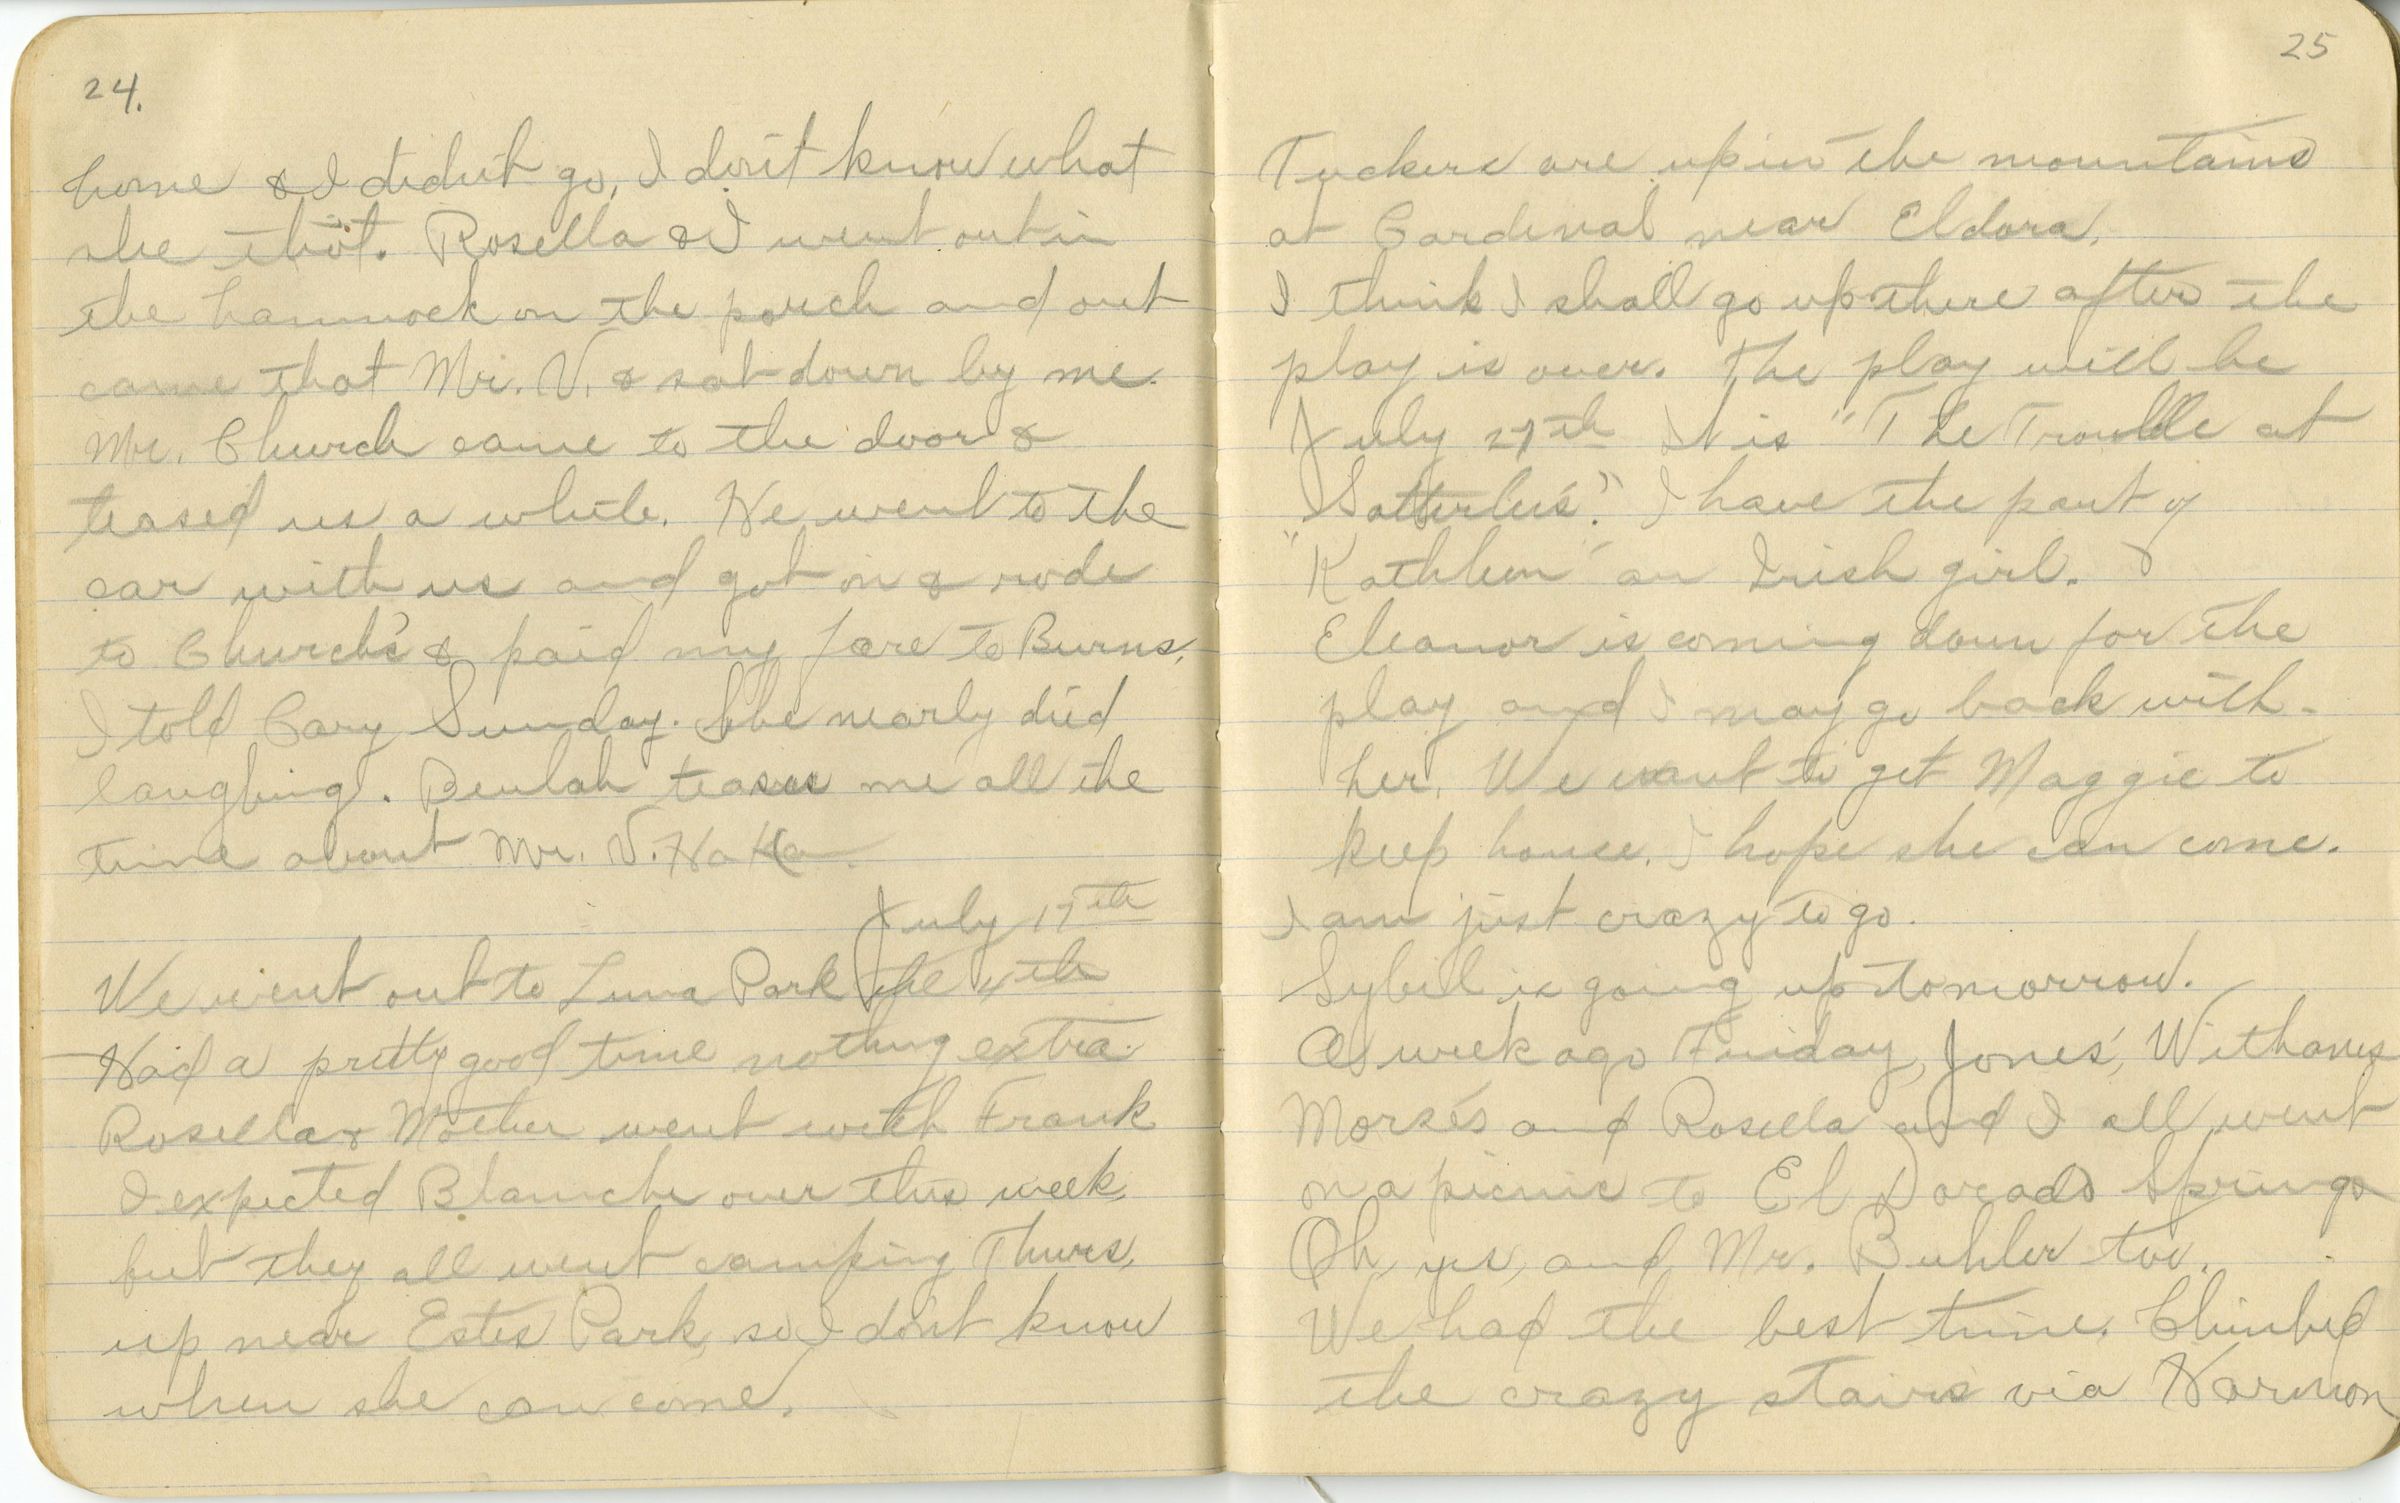 24.
home & I didn't go, I don't know what
she thot. Rosella & I went out in
the hammock on the porch and out
came that Mr. V. & sat down by me.
Mr. Church came to the door &
teased us a while. He went to the
car with us and got on & rode
to Church's & paid my fare to Burns.
I told Cary Sunday. She nearly died
laughing. Beulah teases me all the
time about Mr. V. Ha Ha
July 17th
We went out to Luna Park the 4th
Had a pretty good time nothing extra.
Rosella & Mother went with Frank
I expected Blanche over this week,
but they all went camping Thurs.
up near Estes Park, so I don't know
when she can come.
25
Tuckers are up in the mountains
at Cardinal near Eldora.
I think I shall go up there after the
play is over. The play will be
July 27th It is "The Trouble at
Satterlee's." I have the part of
"Kathleen" an Irish girl.
Eleanor is coming down for the
play and I may go back with
her. We want to get Maggie to
keep house. I hope she can come.
I am just crazy to go.
Sybil is going up tomorrow.
A week ago Friday, Jones', Withams
Morse's and Rosella and I all went
on a picnic to El Dorado Springs
Oh, yes, and Mr. Buhler too.
We had the best time. Climbed
the crazy stairs via Harmon